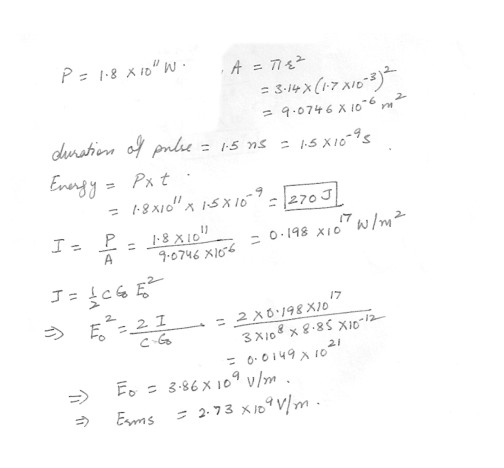 P = 1.8 × 10¹¹ W.
A = πr²
= 3.14 × (1.7 × 10⁻³)²
= 9.0746 × 10⁻⁶ m²
duration of pulse = 1.5 ns = 1.5 × 10⁻⁹ s.
Energy = P × t.
= 1.8 × 10¹¹ × 1.5 × 10⁻⁹ = 270 J
I = P/A = 1.8 × 10¹¹ / 9.0746 × 10⁻⁶ = 0.198 × 10¹⁷ W/m²
I = ½ c ε₀ E₀²
⇒ E₀² = 2 I / c ε₀ = 2 × 0.198 × 10¹⁷ / 3 × 10⁸ × 8.85 × 10⁻¹²
= 0.0149 × 10²¹
⇒ E₀ = 3.86 × 10⁹ V/m.
⇒ Erms = 2.73 × 10⁹ V/m.